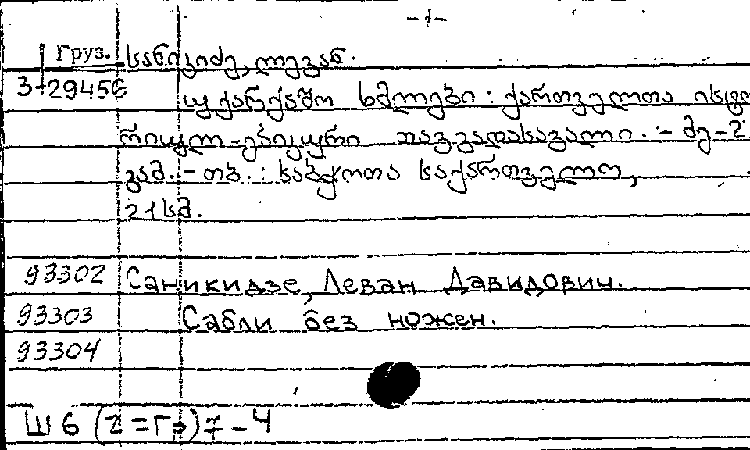 -1-
Груз. სანიკიძე, ლევან.
3-29456 უქარქაშო ხმლები : ქართველთა ისტო
რიულ-ეთიკური თავგადასავალი. - მე-2
გამ. - თბ. : საბჭოთა საქართველო,
21 სმ.
93302 Саникидзе, Леван Давидович.
93303 Сабли без ножен.
93304
Ш6(2=Гр)7-4